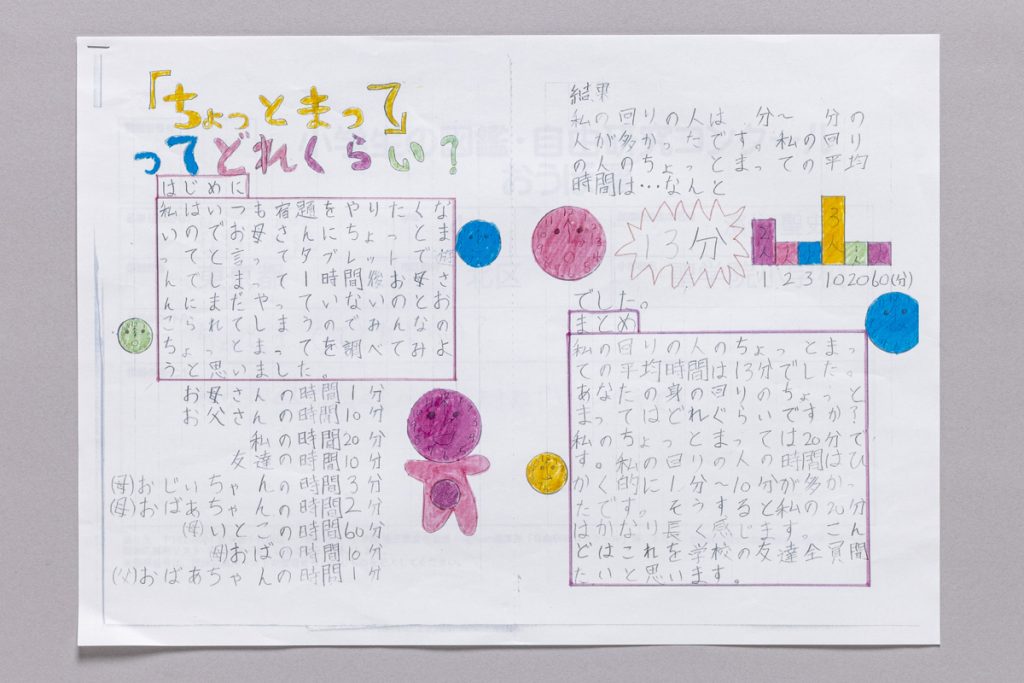 「ちょっとまって」
ってどれくらい？
はじめに
私はいつも宿題をやりたくな
いのでお母さんにちょっとま
ってと言ってタブレットで遊
んでしまって時間後お母さ
んにまだやってないのとお
こられてしまうのでみんなの
ちょっとまってを調べてみよ
うと思いました。
お母さんの時間1分
お父さんの時間10分
私の時間20分
友達の時間10分
(母)おじいちゃんの時間3分
(母)おばあちゃんの時間2分
(母)いとこの時間60分
(母)おばの時間10分
(父)おばあちゃんの時間1分
結果
私の回りの人は　分～　分の
人が多かったです。私の回り
の人のちょっとまっての平均
時間は…なんと
13分
2人
3人
1 2 3 10 20 60(分)
でした。
まとめ
私の回りの人のちょっとまっ
ての平均時間は13分でした。
あなたの身の回りのちょっと
まってはどれぐらいですか？
私のちょっとまっては20分で
す。私の回りの人の時間はひ
かく的に1分～10分が多かっ
たです。そうすると私の20分
はかなり長く感じます。こん
どはこれを学校の友達全員聞
たいと思います。